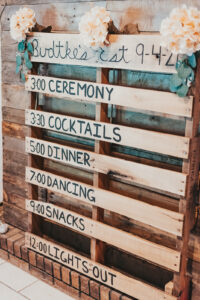 Budtke's est 9-4-2
3:00 CEREMONY
3:30 COCKTAILS
5:00 DINNER
7:00 DANCING
9:00 SNACKS
12:00 LIGHTS-OUT